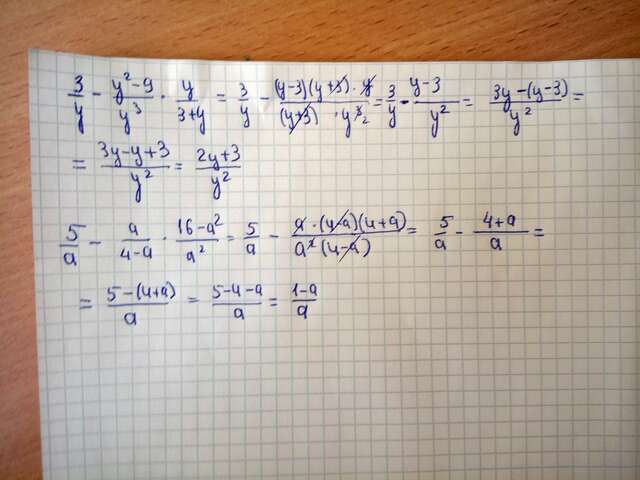 3/y - (y²-9)/y³ · y/(3+y) = 3/y - ((y-3)(y+3)·y)/((y+3)·y³ ₂) = 3/y - (y-3)/y² = (3y-(y-3))/y² =
= (3y-y+3)/y² = (2y+3)/y²
5/a - a/(4-a) · (16-a²)/a² = 5/a - (a·(4-a)(4+a))/(a²(4-a)) = 5/a - (4+a)/a =
= (5-(4+a))/a = (5-4-a)/a = (1-a)/a